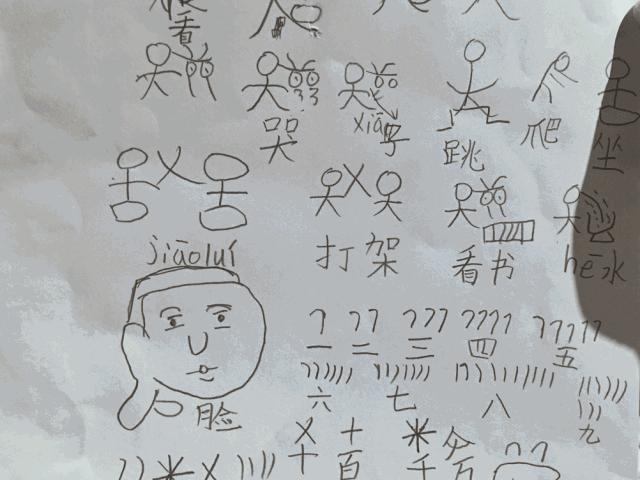 看
哭 xiāo字 跳 爬 坐
jiāoluí 打架 看书 hē水
脸 一 二 三 四 五
六 七 八 九
十 百 千 万